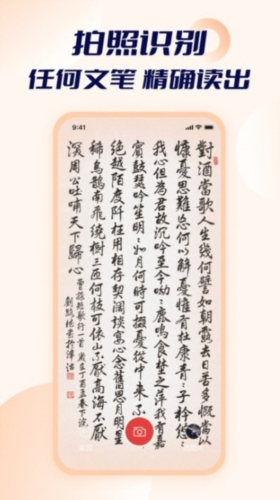 拍照识别
任何文笔 精确读出
9:41
對酒當歌人生幾何譬如朝露去日苦多慨當以
慷憂思難忘何以解憂惟有杜康青:子衿悠:
我心但為君故沉吟至今呦:鹿鳴食野之萍我有嘉
賓鼓瑟吹笙明:如月何時可掇憂從中來不
絕越陌度阡枉用相存契闊談宴心念舊恩月明星
稀烏鵲南飛繞樹三匝何枝可依山不厭高海不厭
深周公吐哺天下歸心
曹操短歌行一首 歲在丁酉孟春下浣
劉 書於津沽